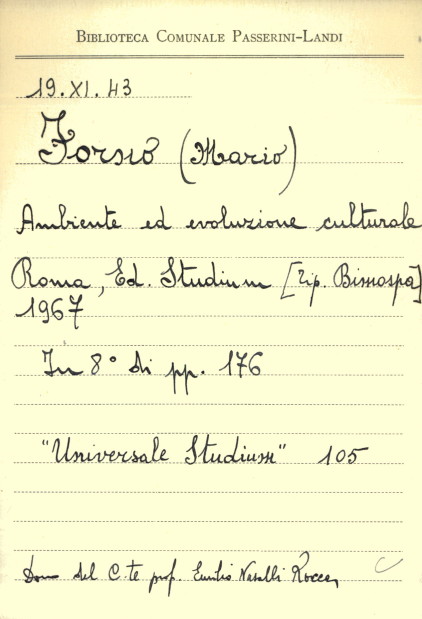 BIBLIOTECA COMUNALE PASSERINI-LANDI
19.XI.43
(Mario)
Ambiente ed evoluzione culturale
Roma, Ed. Studium [Tip. Bimospa]
1967
In 8° di pp. 176
"Universale Studium" 105
Dono del C.te prof. Emilio Nasalli Rocca